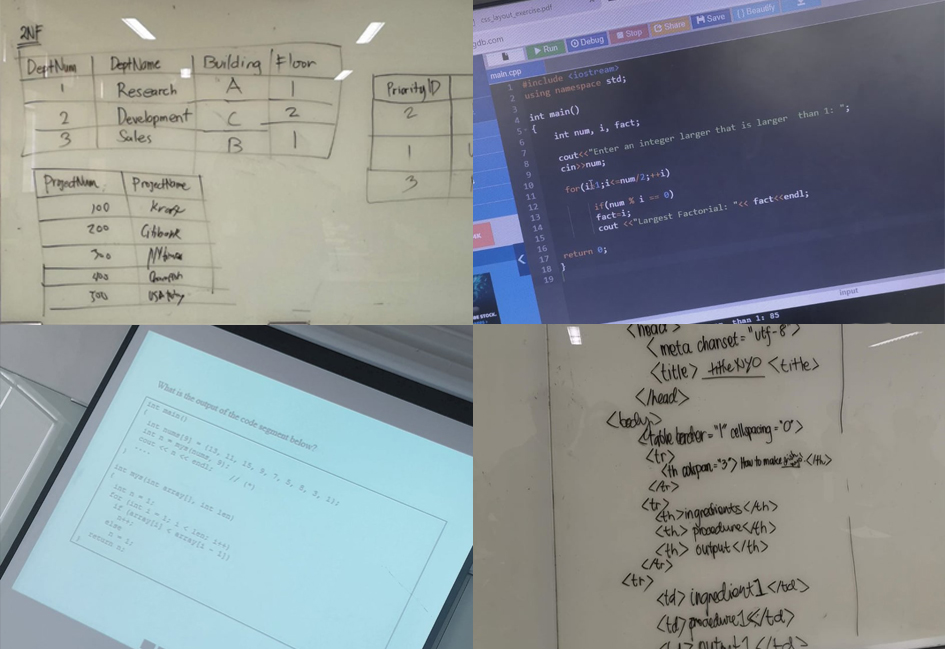 2NF
DeptNum DeptName Building Floor
1 Research A 1
2 Development C 2
3 Sales B 1
PriorityID
2
1
3
ProjectNum. ProjectName
100
200
300
400
500
css_layout_exercise.pdf
gdb.com
Run Debug Stop Share Save { } Beautify
main.cpp
1 #include <iostream>
2 using namespace std;
3
4 int main()
5 {
6 int num, i, fact;
7
8 cout<<"Enter an integer larger that is larger than 1: ";
9 cin>>num;
10
11 for(i=1;i<=num/2;++i)
12 if(num % i == 0)
13 fact=i;
14 cout <<"Largest Factorial: "<< fact<<endl;
15
16 return 0;
17
18 }
19
input
than 1: 85
E STOCK.
What is the output of the code segment below?
int main()
{
int nums[9] = {13, 11, 15, 9, 7, 5, 8, 3, 1};
int n = mys(nums, 9);
cout << n << endl; // (*)
....
}
int mys(int array[], int len)
{
int n = 1;
for (int i = 1; i < len; i++)
if (array[i] < array[i - 1])
n++;
else
n = 1;
return n;
}
<head>
<meta charset="utf-8">
<title> <title>
</head>
<body>
<table border="1" cellspacing="0">
<tr>
<th colspan="3"> How to make </th>
</tr>
<tr>
<th>ingredients</th>
<th> procedure</th>
<th> output</th>
</tr>
<tr>
<td> ingredient1 </td>
<td> procedure1</td>
<td> output1 </td>